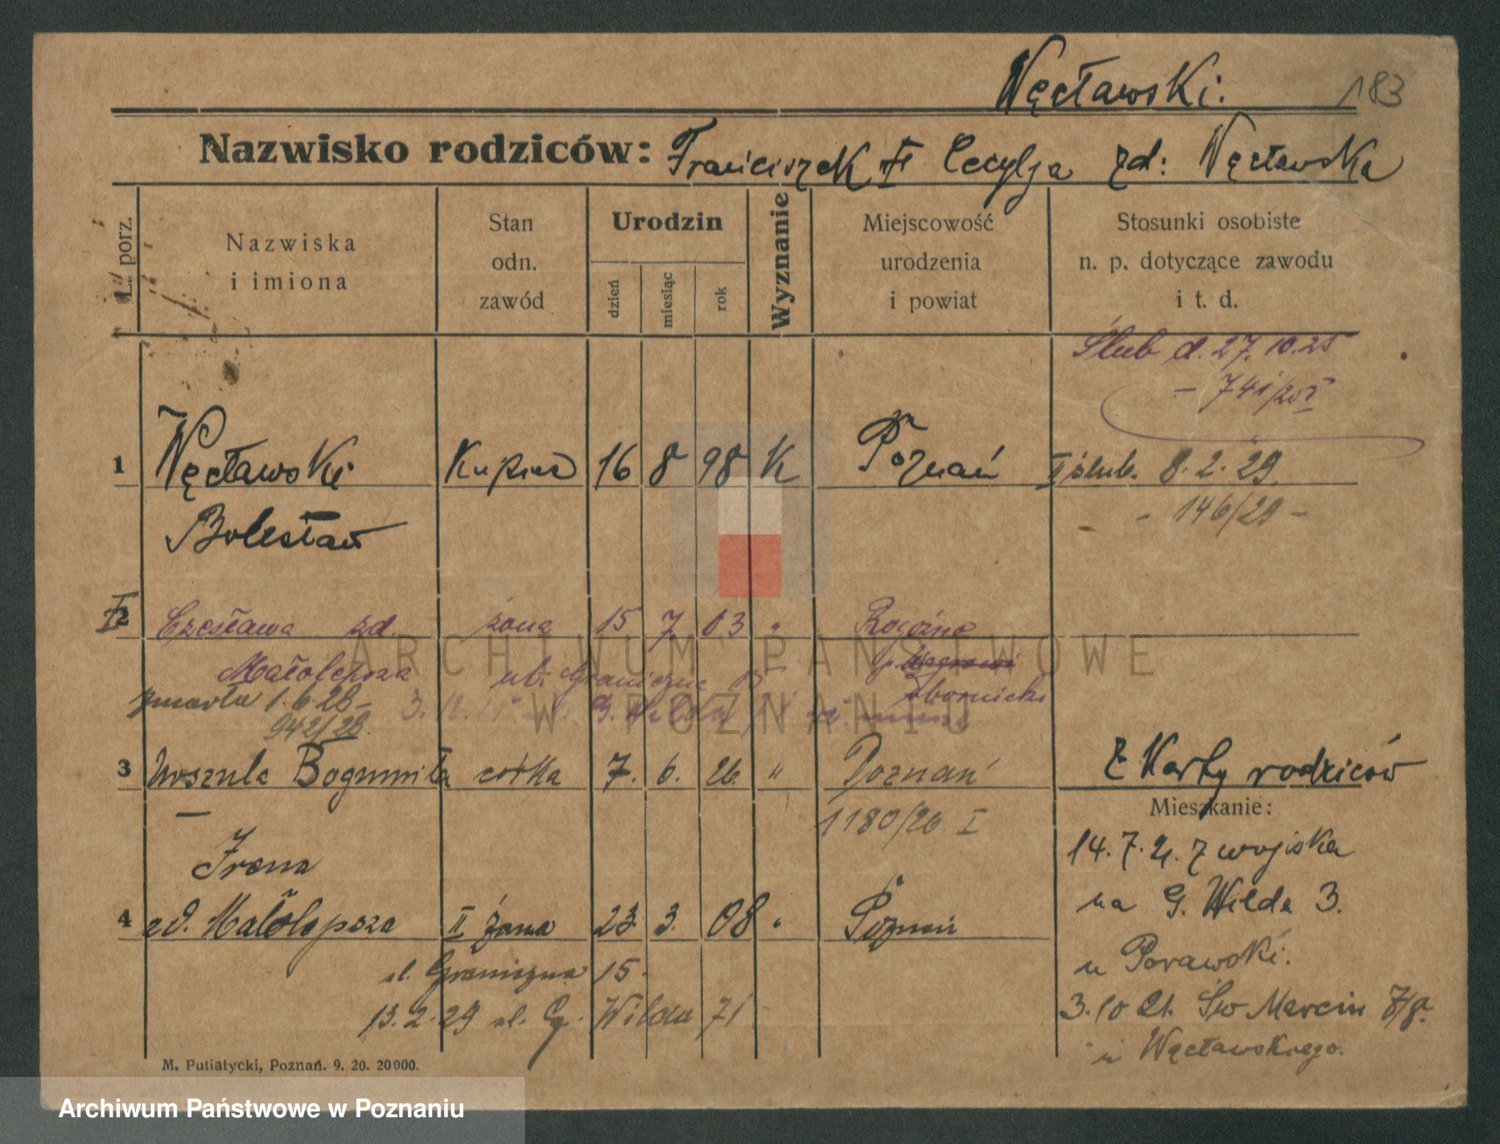 Węcławski. 183
Nazwisko rodziców: Franciszek Cecylja zd: Węcławska
L. porz.
Nazwiska i imiona
Stan odn. zawód
Urodzin
dzień miesiąc rok
Wyznanie
Miejscowość urodzenia i powiat
Stosunki osobiste n. p. dotyczące zawodu i t. d.
Ślub d. 27.10.25
1 Węcławski Kupiec 16 8 98 K Poznań II ślub. 8.2.29.
- 146/29 -
Bolesław
I 2 Czesława zd. żona 15 7 03 " Rogoźno
Małolepsza ul. Graniczna 15
Zbornicki
zmarła 1.6.28 -
942/28.
3 Urszula Bogumiła córka 7. 6. 26 " Poznań Z Karty rodziców
1180/26. I
Mieszkanie:
14.7.21. z wojska
na G. Wilda 3.
Irena
4 zd. Małolepsza II żona 23. 3. 08 " Poznań
u Porawski.
ul. Graniczna 15.
3.10 21. Św Marcin
13.2.29 ul. G. Wilda 71.
u Węcławskiego.
M. Putiatycki, Poznań. 9. 20. 20000.
ARCHIWUM PAŃSTWOWE
W POZNANIU
Archiwum Państwowe w Poznaniu